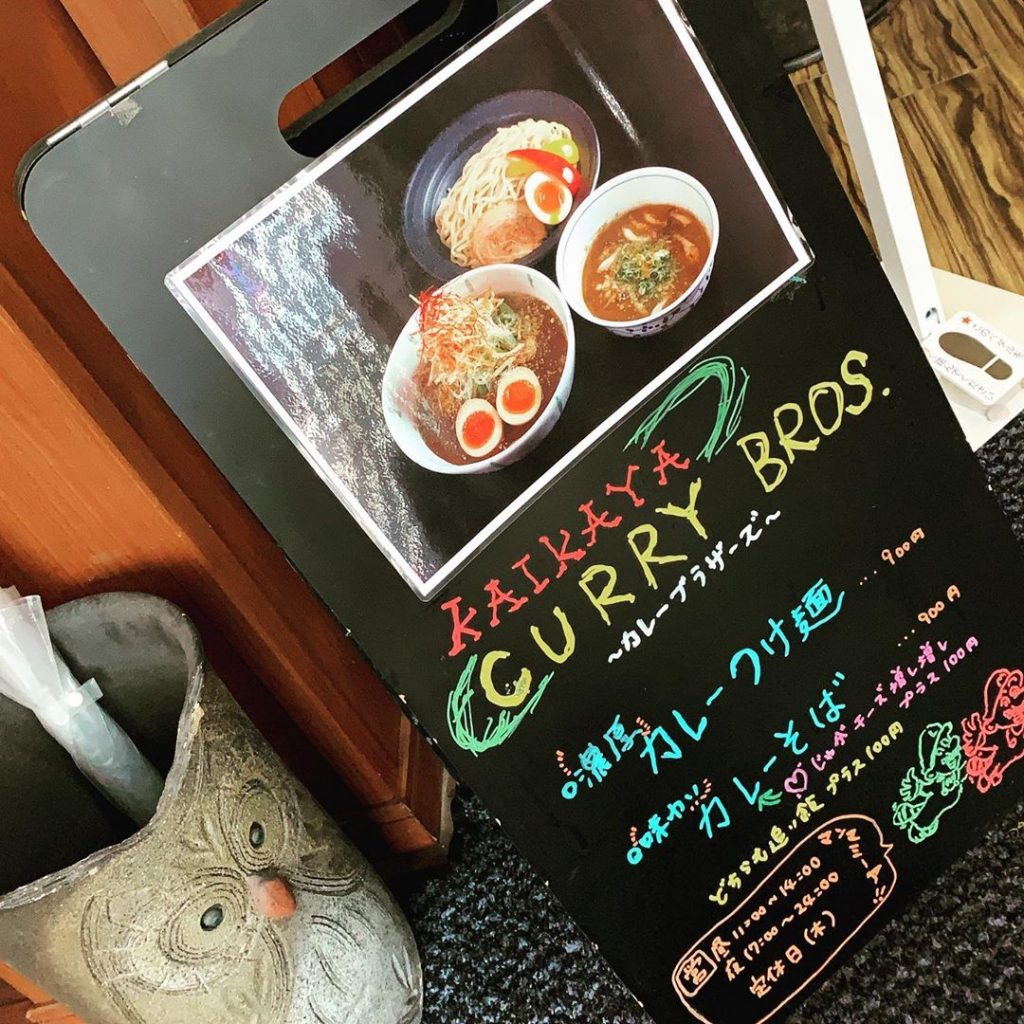 KAIKAYA
CURRY BROS.
～カレーブラザーズ～
濃厚 カレーつけ麺 .... 900円
味カツ カレーそば .... 900円
♡じゃが・チーズ増し増し
プラス100円
どちらも追い飯 プラス100円
マンマミーア!!
営 昼11:00～14:00
夜17:00～24:00
定休日(木)